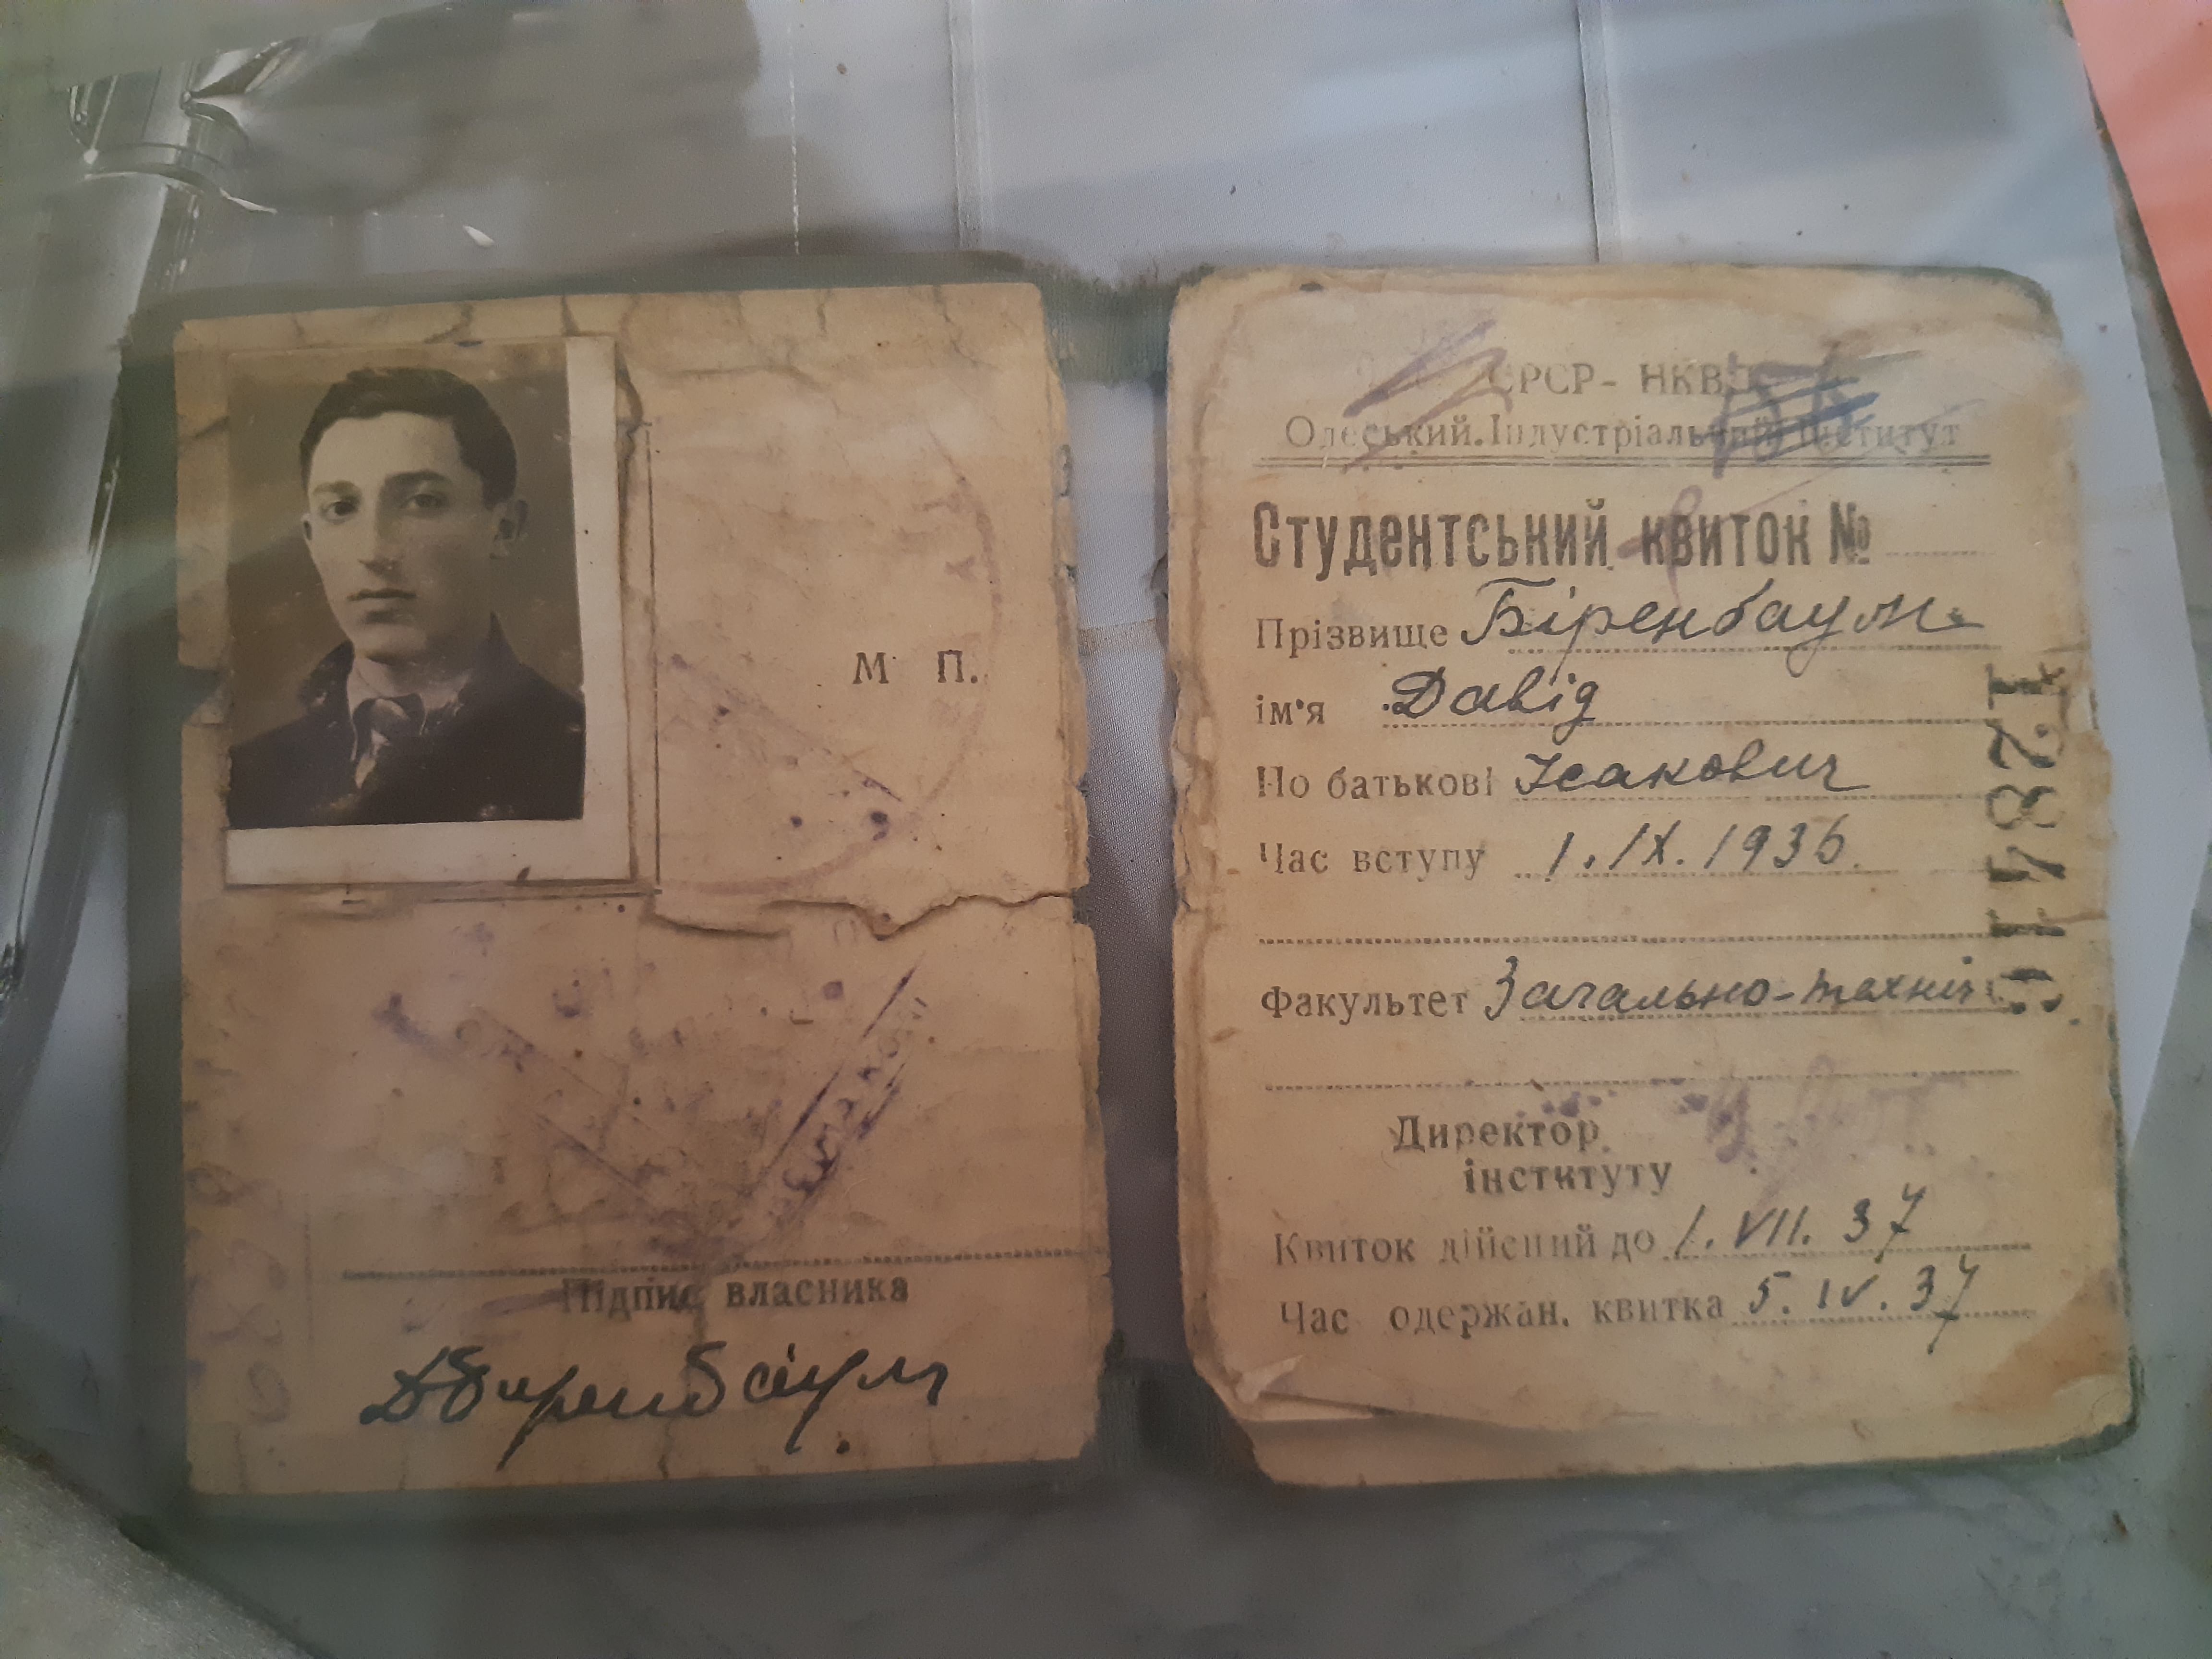 М. П.
Підпис власника
ДБиренбаум
СРСР - НКВ
Одеський Індустріальний Інститут
Студентський квиток №
Прізвище Біренбаум
ім'я Давід
По батькові Ісакович
Час вступу 1. IX. 1936.
Факультет Загально-техніч
Директор
інституту
Квиток дійсний до 1. VII. 37
Час одержан. квитка 5. IV. 37